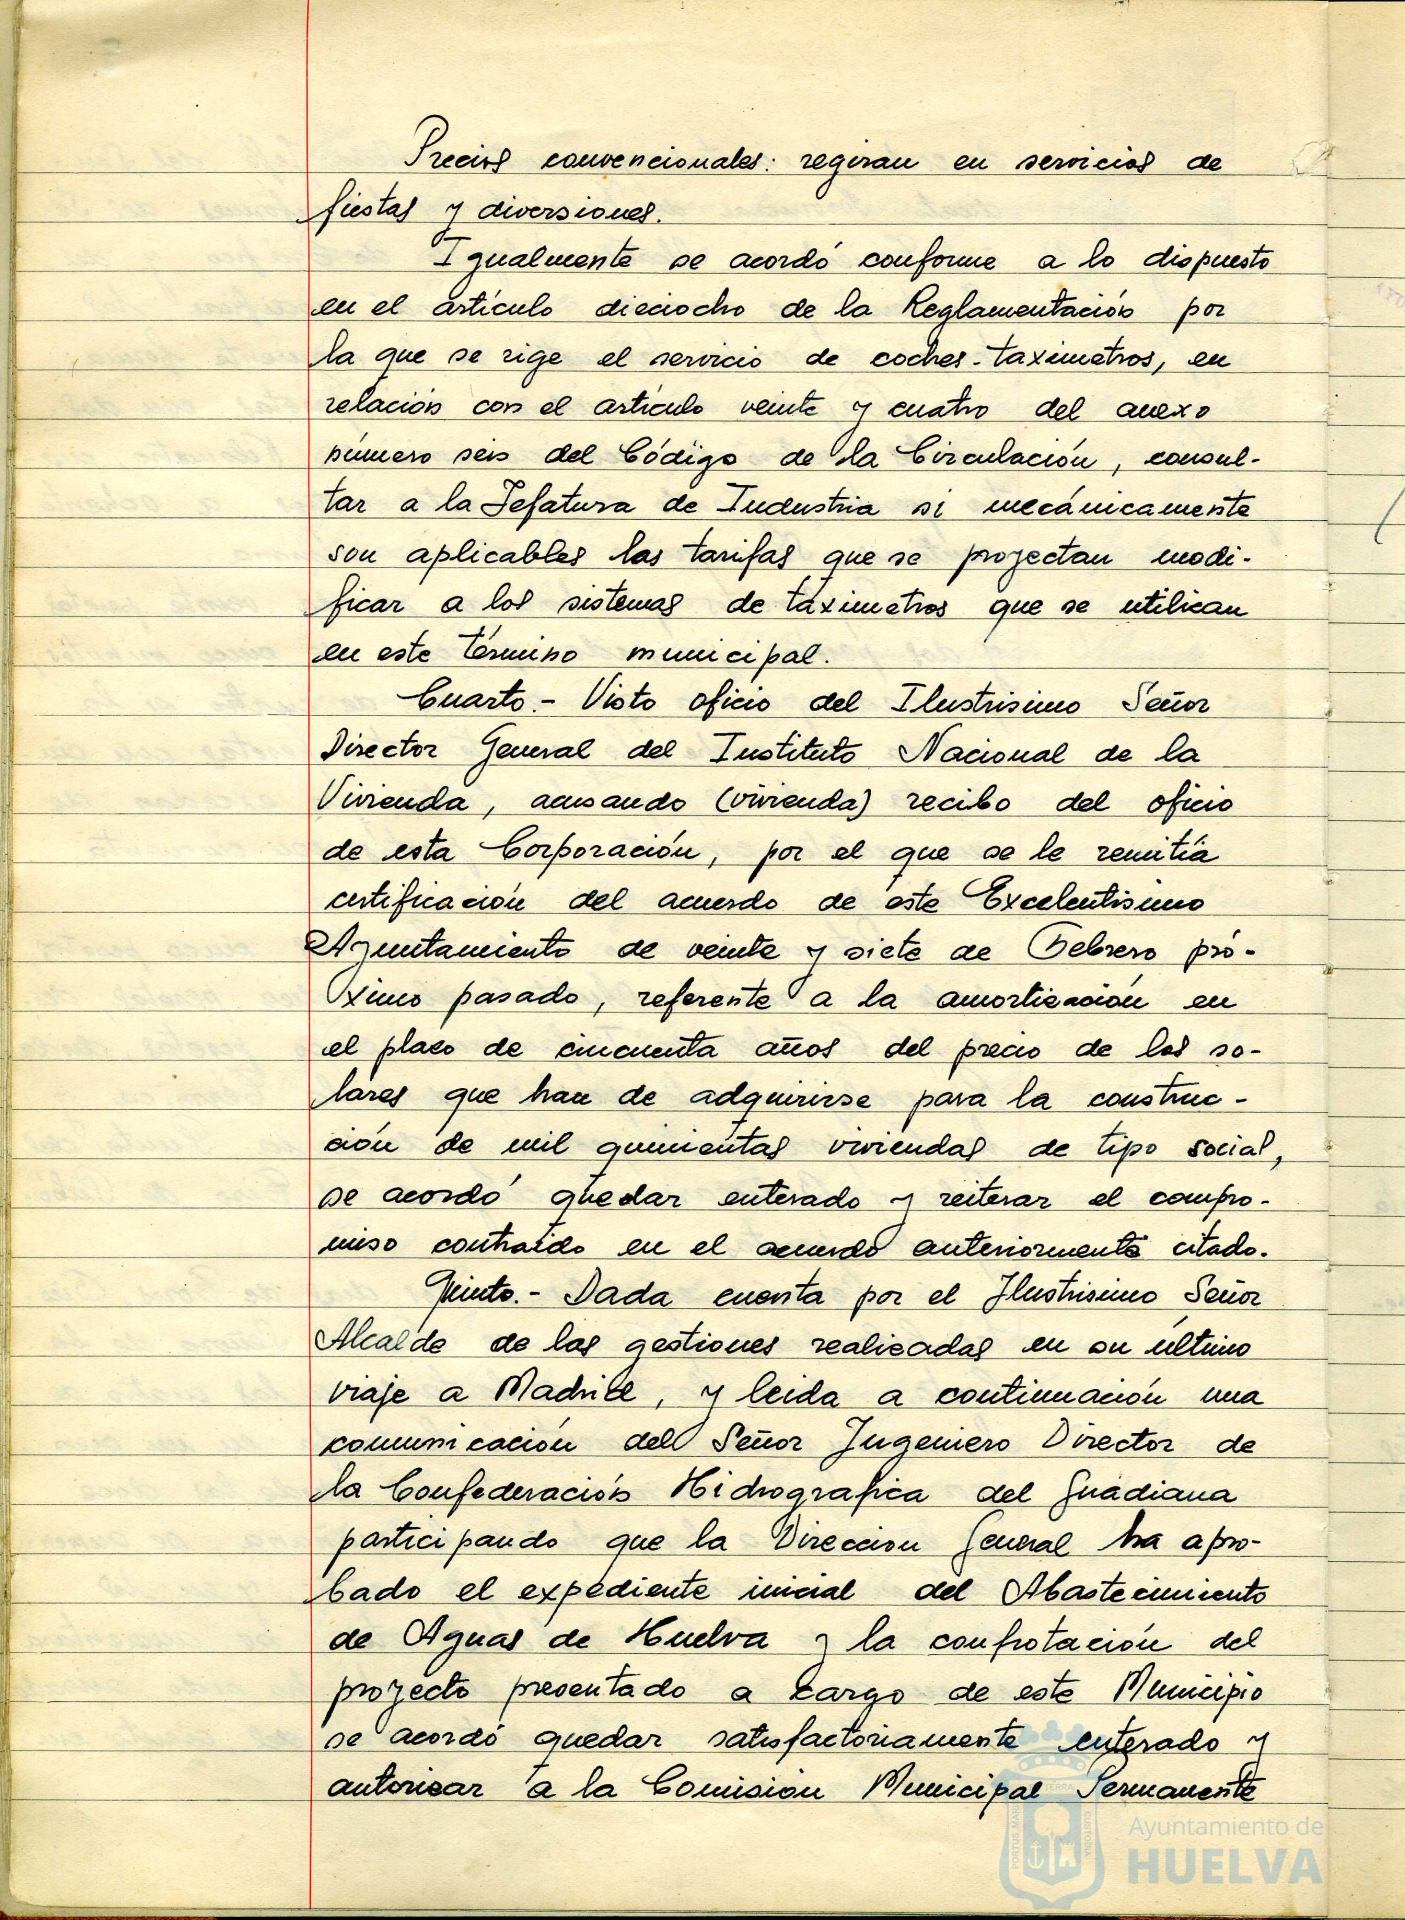 Precios convencionales: regiran en servicios de
fiestas y diversiones.
Igualmente se acordó conforme a lo dispuesto
en el artículo dieciocho de la Reglamentación por
la que se rige el servicio de coches-taximetros, en
relación con el artículo veinte y cuatro del anexo
número seis del Código de la Circulación, consul-
tar a la Jefatura de Industria si mecánicamente
son aplicables las tarifas que se proyectan modi-
ficar a los sistemas de taximetros que se utilican
en este término municipal.
Cuarto.- Visto oficio del Ilustrisimo Señor
Director General del Instituto Nacional de la
Vivienda, acusando (vivienda) recibo del oficio
de esta Corporación, por el que se le remitía
certificación del acuerdo de este Excelentisimo
Ayuntamiento de veinte y siete de Febrero pró-
ximo pasado, referente a la amortización en
el plazo de cincuenta años del precio de los so-
lares que han de adquirirse para la construc-
ción de mil quinientas viviendas de tipo social,
se acordó quedar enterado y reiterar el compro-
miso contraído en el acuerdo anteriormente citado.
Quinto.- Dada cuenta por el Ilustrisimo Señor
Alcalde de las gestiones realizadas en su último
viaje a Madrid, y leida a continuación una
comunicación del Señor Ingeniero Director de
la Confederación Hidrografica del Guadiana
participando que la Direccion General ha apro-
bado el expediente inicial del Abastecimiento
de Aguas de Huelva y la confrotación del
proyecto presentado a cargo de este Municipio
se acordó quedar satisfactoriamente enterado y
autorizar a la Comision Municipal Permanente
Ayuntamiento de
HUELVA